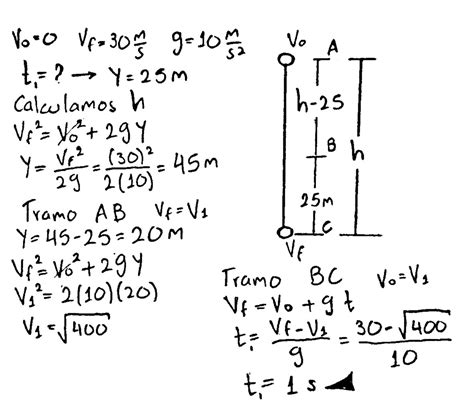 V₀=0 Vf=30 m/s g=10 m/s²
t₁=? → Y=25m
Calculamos h
Vf²=V₀²+2gY
Y=Vf²/2g=(30)²/2(10)=45m
Tramo AB Vf=V₁
Y=45-25=20m
Vf²=V₀²+2gY
V₁²=2(10)(20)
V₁=√400
V₀
A
h-25
B
h
25m
C
Vf
Tramo BC V₀=V₁
Vf=V₀+gt
t₁=Vf-V₁/g=30-√400/10
t₁=1s